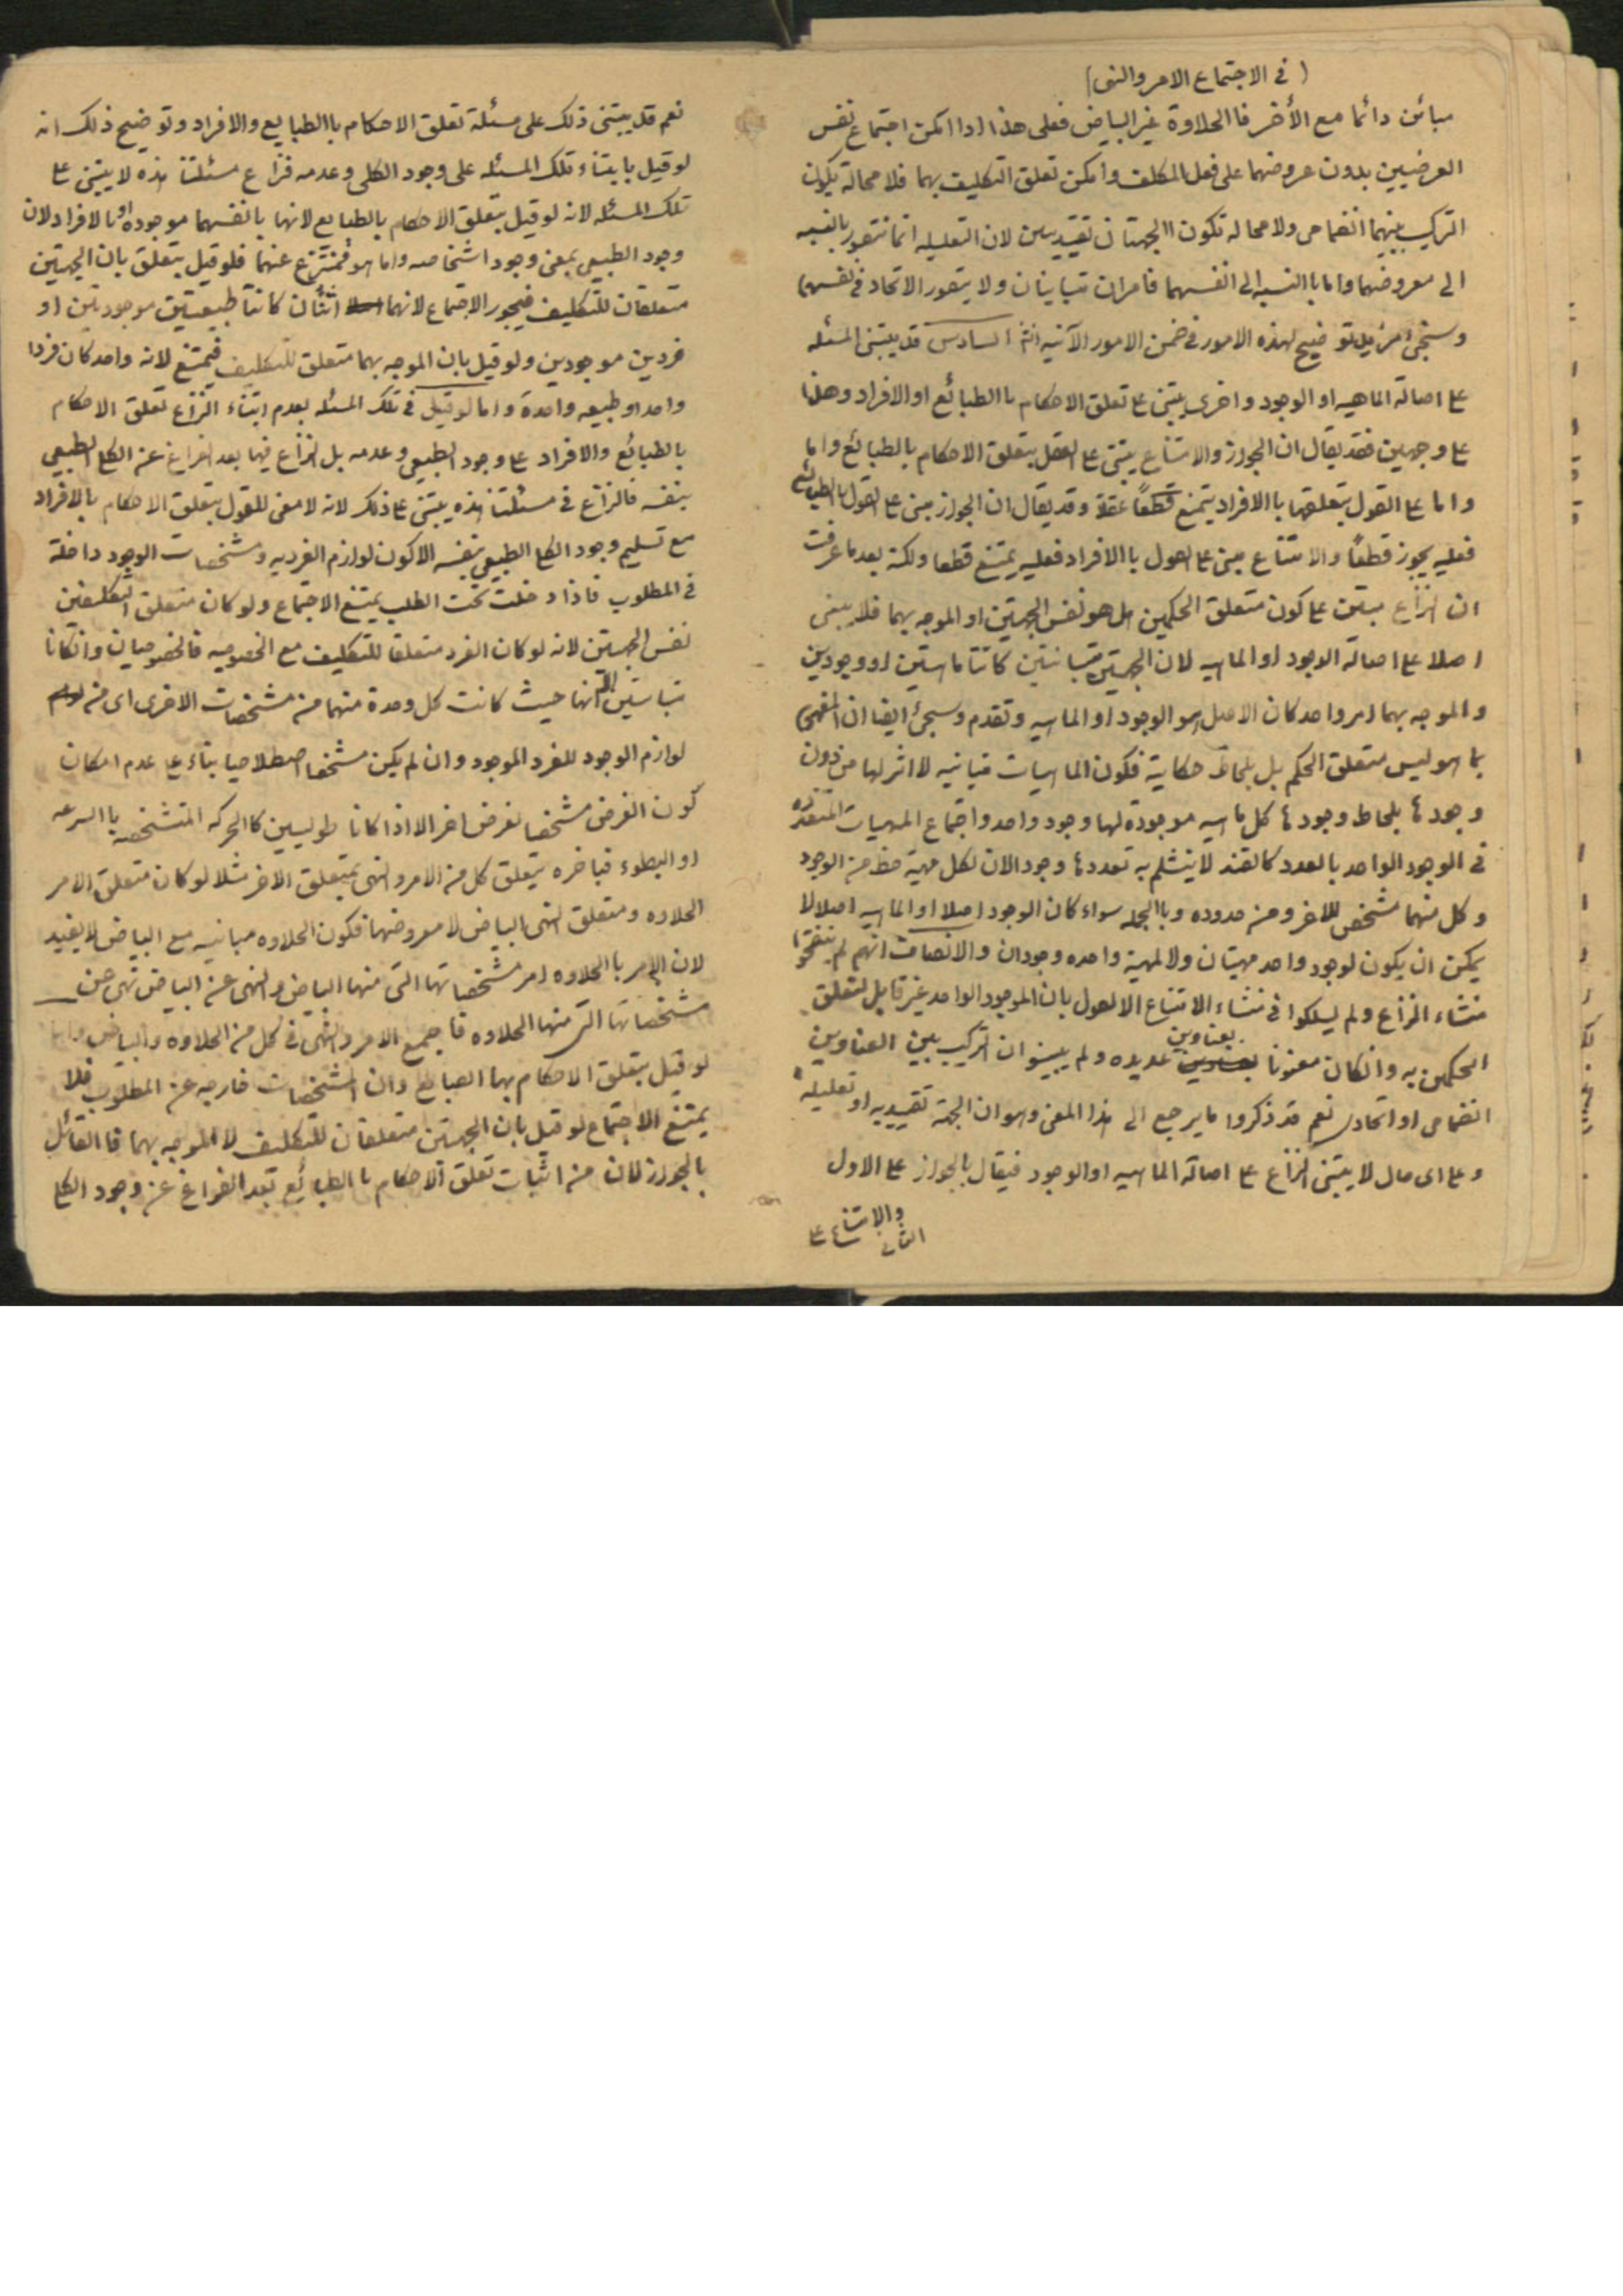 (في الاجتماع الامر والنهى)
مبائن دائما مع الأخر فا الحلاوة غير البياض فعلى هذا اذا امكن اجتماع نفس
العرضيين بدون عروضهما على فعل المكلف وامكن تعلق التكليف بهما فلا محالة يكون
التركيب بينهما انضمامى ولا محاله تكون الجهتان تقييديتين لان التعليليه انما تتصور بالنسبه
الى معروضهما واما با النسبه الى انفسهما فامران متباينان ولا يتصور الاتحاد في نفسهما
وسيجئ مزيد توضيح لهذه الامور في ضمن الامور الآتيه انش السادس قد يبتنى المسئله
على اصالة الماهيه او الوجود واخرى يبتنى على تعلق الاحكام با الطبائع او الافراد وهذا
على وجهين فقد يقال ان الجواز والامتناع يبتنى على القول بتعلق الاحكام بالطبائع واما
واما على القول بتعلقها با الافراد يمتنع قطعاً عقلا وقد يقال ان الجواز مبنى على القول بالطبائع
فعليه يجوز قطعاً والامتناع مبنى على القول با الافراد فعليه يمتنع قطعا ولكنه بعدما عرفت
ان النزاع مبتن على كون متعلق الحكمين هل هو نفس الجهتين او الموجه بهما فلا يبتنى
اصلا على اصالة الوجود او الماهيه لان الجهتين متبانيتين كانتا ماهيتين او وجودين
والموجه بهما امر واحد كان الاصل هو الوجود او الماهيه وتقدم وسيجئ ايضا ان المفهوم
بما هو ليس متعلق الحكم بل بلحاظ حكايته فكون الماهيات متبانيه لا اثر لها من دون
وجودها بلحاظ وجودها كل ماهيه موجودة لها وجود واحد واجتماع المهيات المتعدده
في الوجود الواحد بالعدد كالقند لا ينثلم به تعددها وجود الان لكل مهية حظ من الوجود
وكل منهما مشخص للاخر ومن حدوده وبا الجمله سواء كان الوجود اصلا او الماهيه اصلا لا
يمكن ان يكون لوجود واحد مهيتان ولا لمهية واحده وجودان والانصاف انهم لم ينقحوا
منشاء النزاع ولم يسلكوا في منشاء الامتناع الا القول بان الموجود الواحد غير قابل لتعلق
الحكمين به وانكان معنونا بعناوين عديده ولم يبينوا ان التركيب بين العناوين
انضمامى او اتحادى نعم قد ذكروا ما يرجع الى هذا المعنى وهو ان الجهة تقييديه او تعليليه
وعلى اى حال لا يبتنى النزاع على اصالة الماهيه او الوجود فيقال بالجواز على الاول
والامتناع على
الثانى
نعم قد يبتنى ذلك على مسئلة تعلق الاحكام با الطبايع والافراد وتوضيح ذلك انه
لو قيل بابتناء تلك المسئله على وجود الكلى وعدمه فنزاع مسئلتنا هذه لا يبتنى على
تلك المسئله لانه لو قيل بتعلق الاحكام بالطبايع لانها بانفسهما موجوده او بالافراد لان
وجود الطبيعى بمعنى وجود اشخاصه واما هو فمنتزع عنهما فلو قيل بتعلق بان الجهتين
متعلقان للتكليف فيجوز الاجتماع لانهما اثنان كانتا طبيعتين موجودتين او
فردين موجودين ولو قيل بان الموجه بهما متعلق للتكليف فيمتنع لانه واحد كان فردا
واحد او طبيعه واحدة واما لو قيل في تلك المسئله بعدم ابتناء النزاع تعلق الاحكام
بالطبائع والافراد على وجود الطبيعى وعدمه بل النزاع فيها بعد الفراغ عن الكلى الطبيعى
بنفسه فالنزاع في مسئلتنا هذه يبتنى على ذلك لانه لا معنى للقول بتعلق الاحكام بالافراد
مع تسليم وجود الكلى الطبيعى بنفسه الا كون لوازم الفرديه ومشخصات الوجود داخلة
في المطلوب فاذا دخلت تحت الطلب يمتنع الاجتماع ولو كان متعلق التكليفين
نفس الجهتين لانه لو كان الفرد متعلقا للتكليف مع الخصوصيه فالخصوصيان وانكانا
متباينتين الا انها حيث كانت كل وحدة منهما من مشخصات الاخرى اى من
لوازم الوجود للفرد الموجود وان لم يكن مشخصا اصطلاحيا بناء على عدم امكان
كون العرض مشخصا لعرض اخر الا اذا كانا طوليين كالحركه المتشخصه با السرعه
او البطوء فباخره يتعلق كل من الامر والنهى بمتعلق الاخر مثلا لو كان متعلق الامر
الحلاوه ومتعلق النهى البياض لا معروضهما فكون الحلاوه مبانيه مع البياض لا يفيد
لان الامر با الحلاوه امر مشخصاتها التى منها البياض والنهى عن البياض نهى عن
مشخصاتها التى منها الحلاوه فاجتمع الامر والنهى في كل من الحلاوه والبياض واما
لو قيل بتعلق الاحكام بهما الطبايع وان المشخصات خارجه عن المطلوب فلا
يمتنع الاجتماع لو قيل بان الجهتين متعلقان للتكليف لا الموجه بهما فا القائل
بالجواز لابد من اثبات تعلق الاحكام با الطبائع بعد الفراغ عن وجود الكلى